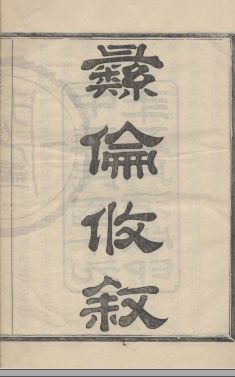 彝倫攸敘